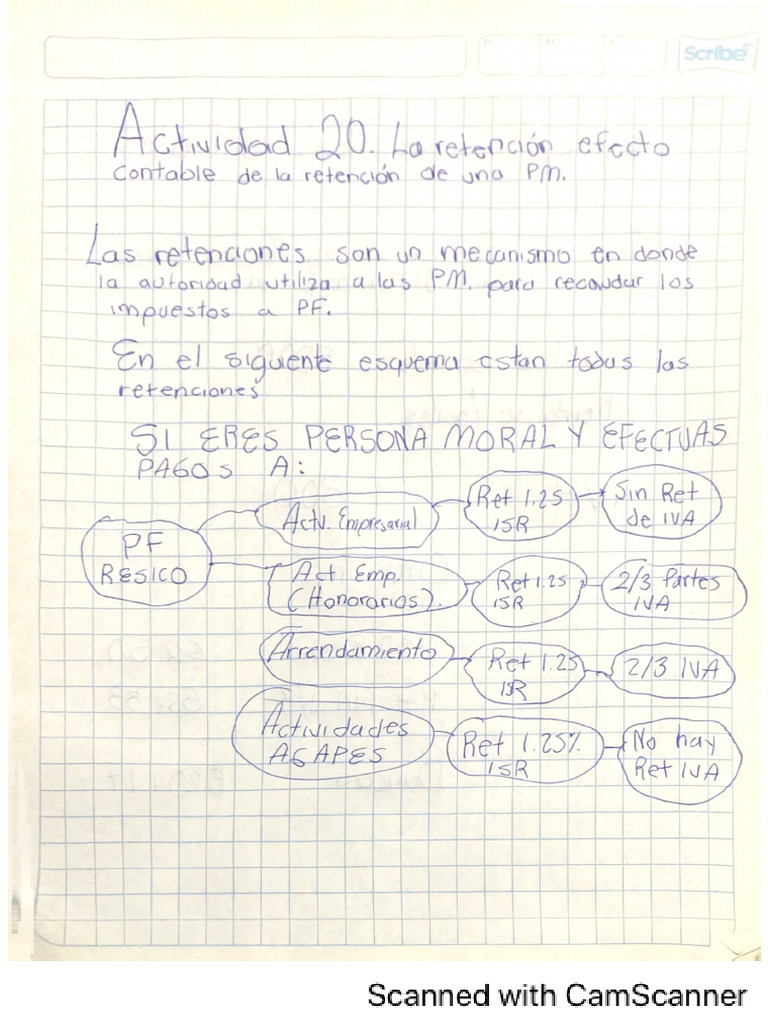 Scribe
Actividad 20. La retención efecto
contable de la retención de una PM.
Las retenciones son un mecanismo en donde
la autoridad utiliza a las PM. para recaudar los
impuestos a PF.
En el siguiente esquema estan todas las
retenciones
SI ERES PERSONA MORAL Y EFECTUAS
PAGOS A:
PF
RESICO
Actv. Empresarial
Ret 1.25
ISR
Sin Ret
de IVA
Act Emp.
(Honorarios).
Ret 1.25
ISR
2/3 Partes
IVA
Arrendamiento
Ret 1.25
ISR
2/3 IVA
Actividades
AGAPES
Ret 1.25%
ISR
No hay
Ret IVA
Scanned with CamScanner